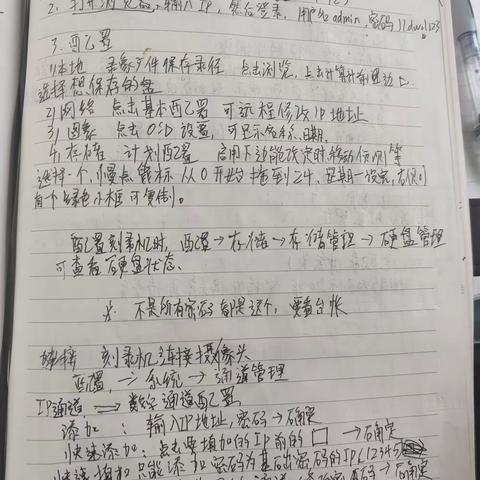 2. 打开浏览器,输入IP,然后登录,用户名admin,密码
3.配置
1)本地 录象文件保存路径 点击浏览,点击计算计前
选择想保存的盘
2)网络 点击基本配置 可远程修改IP地址
3)图象 点击OSD设置,可显示名称、日期.
4)存储 计划配置 启用下边能改定时、移动侦测等
选择一个,慢点鼠标从0开始 到24、星期一设完,右侧
有个绿色小框可复制。
配置刻录机时,配置→存储→存储管理→硬盘管理
可查看硬盘状态、
☆ 不是所有密码都是这个,要看台帐
链接 刻录机连接摄像头
配置,→系统→通道管理
IP通道 ⇒ 数字通道配置
添加:输入IP地址,密码→确定
快速添加:点击要添加的IP前的□→确定
快速添加只能添加密码为基础密码的IP(12345)
密码→确定